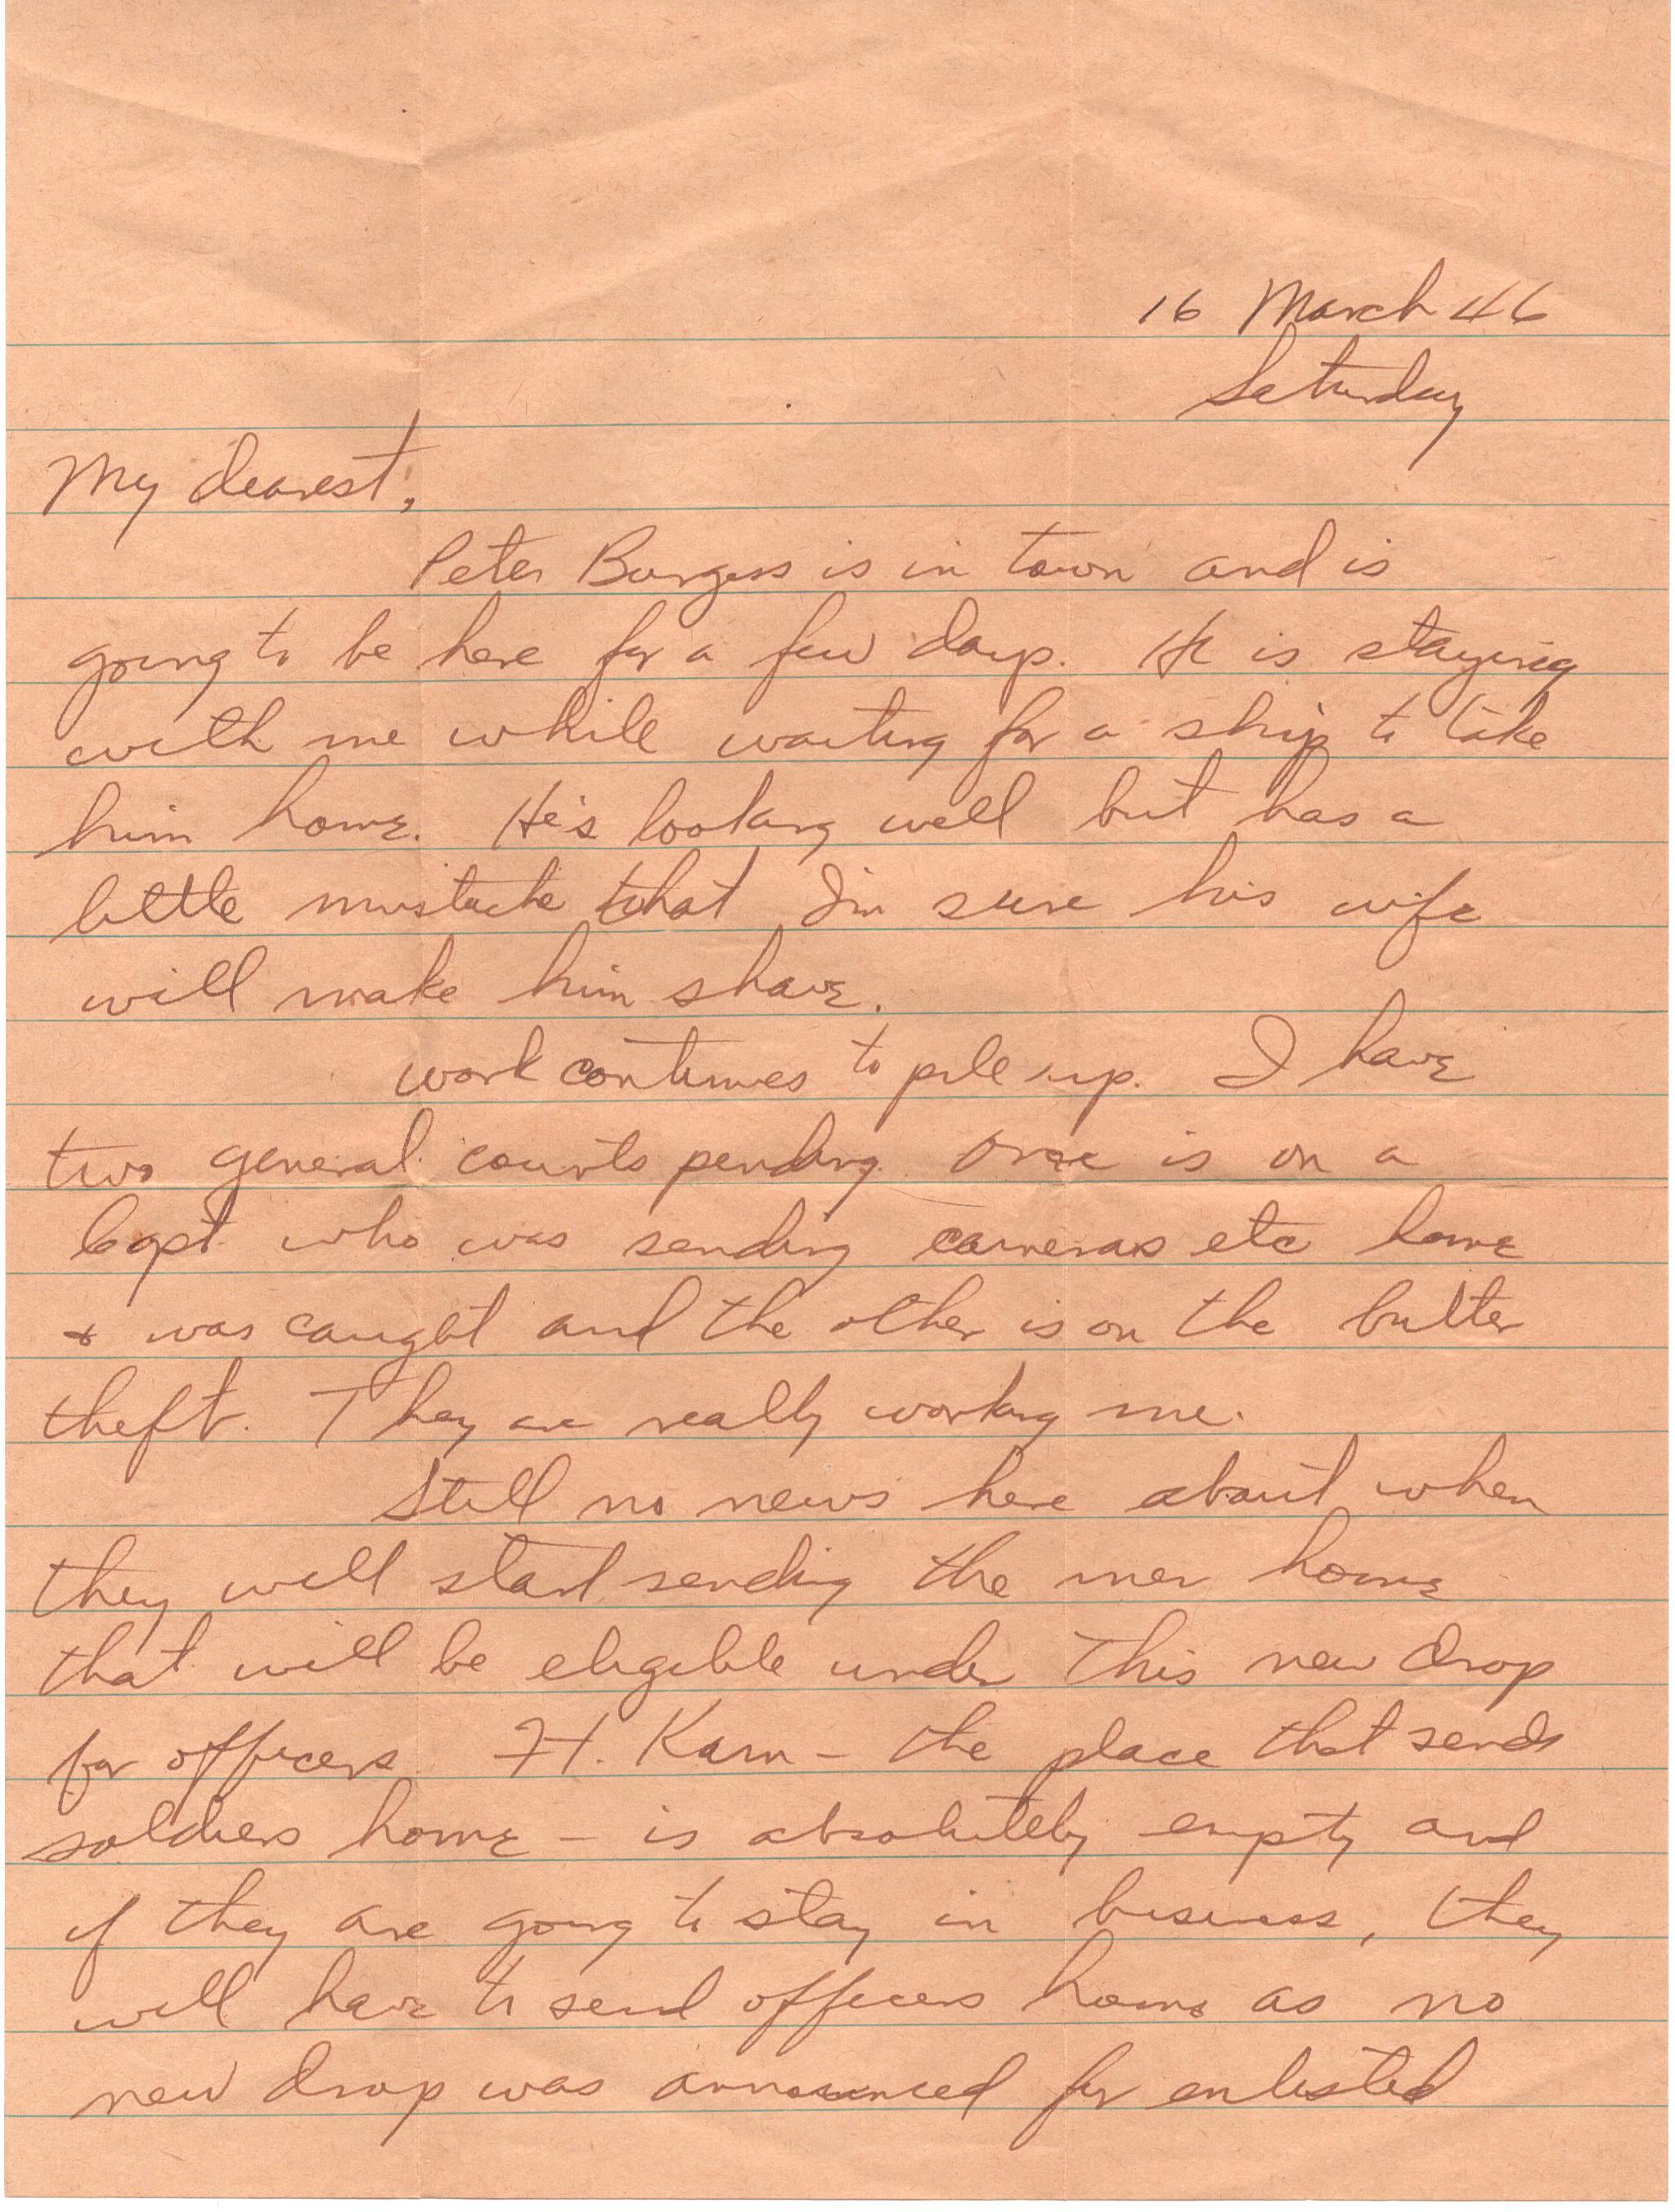 16 March 46
Saturday
My dearest,
Peter Burgess is in town and is
going to be here for a few days. He is staying
with me while waiting for a ship to take
him home. He's looking well but has a
little mustache that I'm sure his wife
will make him shave.
Work continues to pile up. I have
two general courts pending. One is on a
Capt who was sending cameras etc home
+ was caught and the other is on the butter
theft. They are really working me.
Still no news here about when
they will start sending the men home
that will be eligible under this new drop
for officers. Ft. Kam – the place that sends
soldiers home – is absolutely empty and
if they are going to stay in business, they
will have to send officers home as no
new drop was announced for enlisted